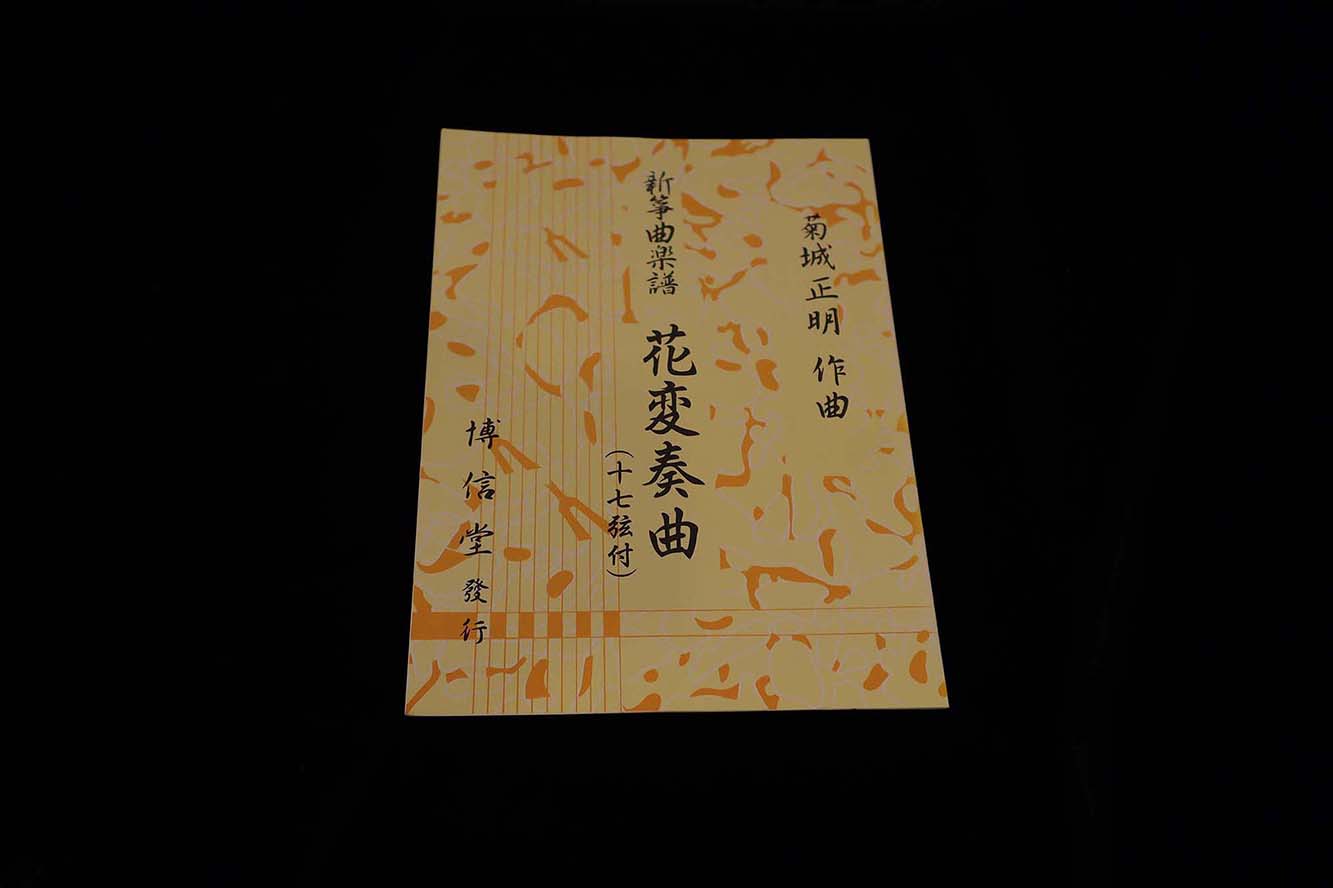 菊城正明 作曲
新箏曲楽譜 花変奏曲
(十七弦付)
博信堂發行